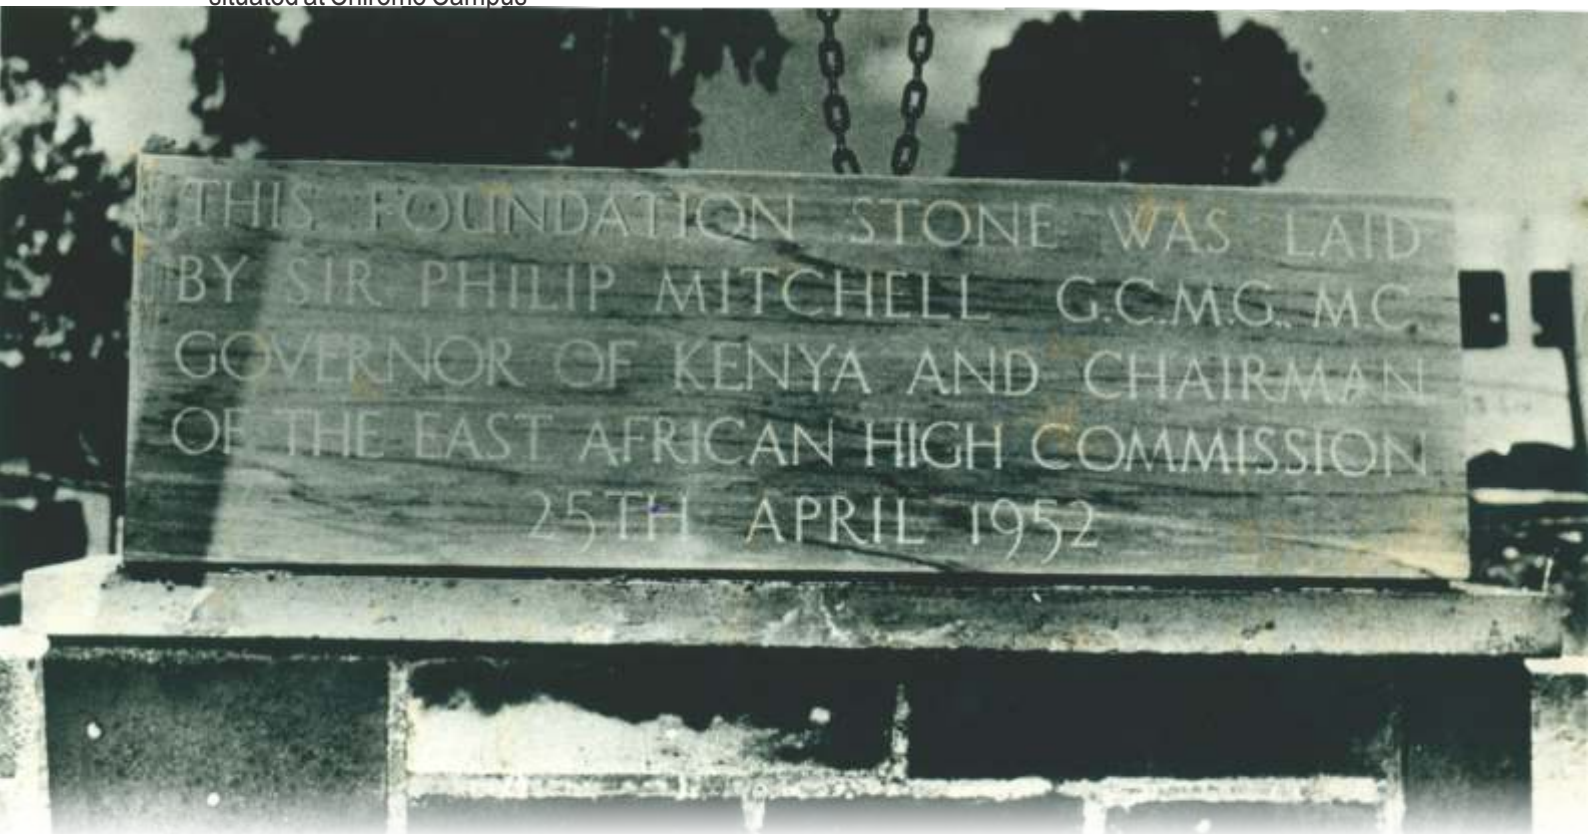 situated at Chiromo Campus
THIS FOUNDATION STONE WAS LAID
BY SIR PHILIP MITCHELL G.C.M.G., M C.
GOVERNOR OF KENYA AND CHAIRMAN
OF THE EAST AFRICAN HIGH COMMISSION
25TH APRIL 1952